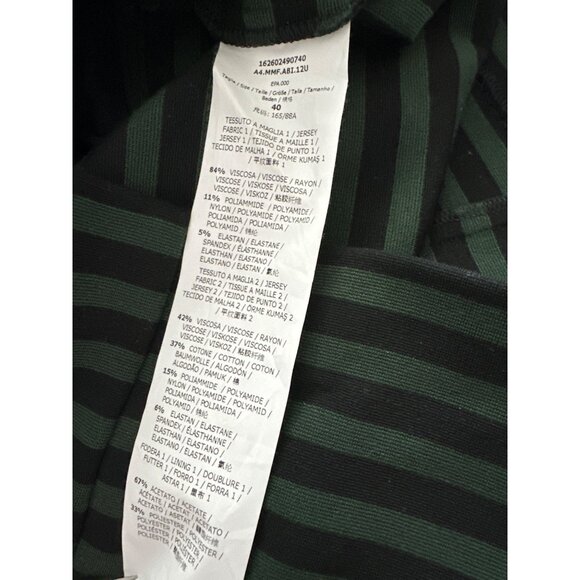 162602490740
A4.MMF.ABI.12U
EPA.000
Taglia / Size / Taille / Größe / Talla / Tamanho /
Beden / 规格
40
尺码: 165/88A
TESSUTO A MAGLIA 1 / JERSEY
FABRIC 1 / TISSUE A MAILLE 1 /
JERSEY 1 / TEJIDO DE PUNTO 1 /
TECIDO DE MALHA 1 / ÖRME KUMAŞ 1
/ 平纹面料 1
84% VISCOSA / VISCOSE / RAYON /
VISCOSE / VISKOSE / VISCOSA /
VISCOSE / VISKOZ / 粘胶纤维
11% POLIAMMIDE / POLYAMIDE /
NYLON / POLYAMIDE / POLYAMID /
POLIAMIDA / POLIAMIDA /
POLYAMID / 锦纶
5% ELASTAN / ELASTANE /
SPANDEX / ÉLASTHANNE /
ELASTHAN / ELASTANO /
ELASTANO / ELASTAN / 氨纶
TESSUTO A MAGLIA 2 / JERSEY
FABRIC 2 / TISSUE A MAILLE 2 /
JERSEY 2 / TEJIDO DE PUNTO 2 /
TECIDO DE MALHA 2 / ÖRME KUMAŞ 2
/ 平纹面料 2
42% VISCOSA / VISCOSE / RAYON /
VISCOSE / VISKOSE / VISCOSA /
VISCOSE / VISKOZ / 粘胶纤维
37% COTONE / COTTON / COTON /
BAUMWOLLE / ALGODÓN /
ALGODÃO / PAMUK / 棉
15% POLIAMMIDE / POLYAMIDE /
NYLON / POLYAMIDE / POLYAMID /
POLIAMIDA / POLIAMIDA /
POLYAMID / 锦纶
6% ELASTAN / ELASTANE /
SPANDEX / ÉLASTHANNE /
ELASTHAN / ELASTANO /
ELASTANO / ELASTAN / 氨纶
FODERA 1 / LINING 1 / DOUBLURE 1 /
FUTTER 1 / FORRO 1 / FORRA 1 /
ASTAR 1 / 里布 1
67% ACETATO / ACETATE /
ACÉTATE / ACETAT / ACETATO /
ACETATO / ASETAT / 醋酯纤维
33% POLIESTERE / POLYESTER /
POLYESTER / POLYESTER /
POLIÉSTER /